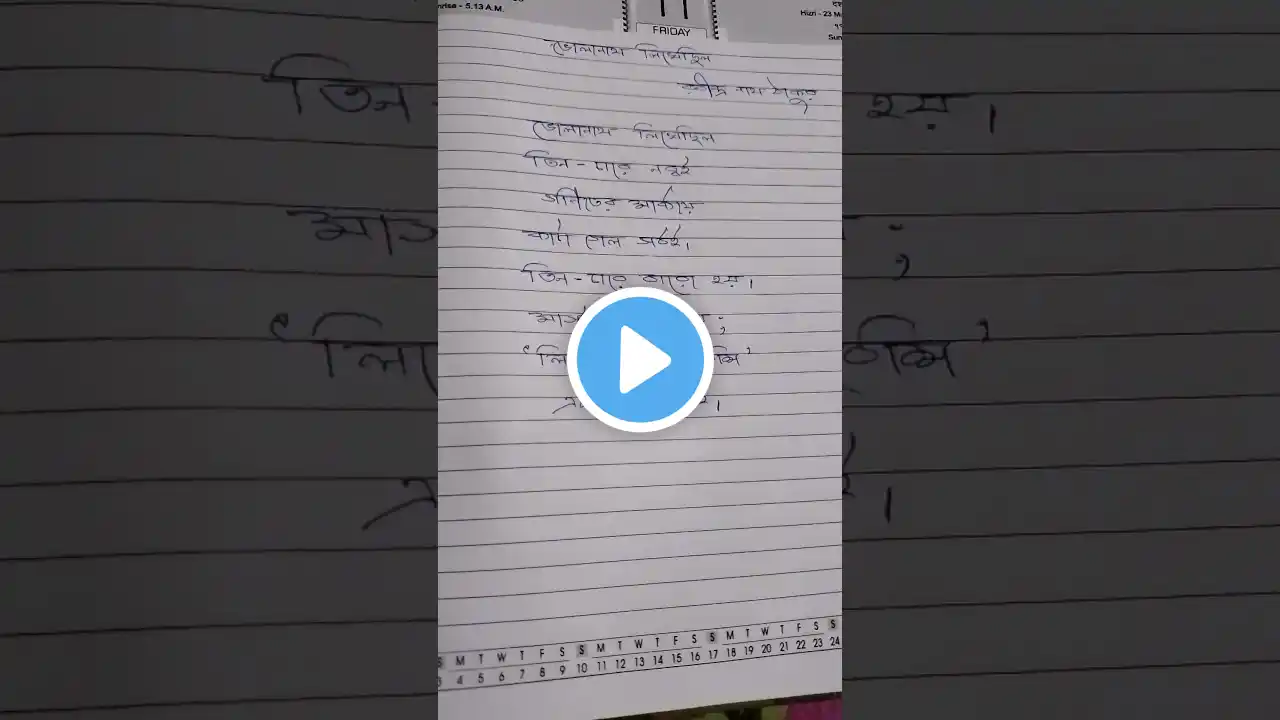 nrise - 5.13 A.M.
11
FRIDAY
Hizri - 23 M
Sun
ভোলানাথ লিখেছিল
রবীন্দ্র নাথ ঠাকুর
ভোলানাথ লিখেছিল
তিন - চারে নব্বই
গণিতের মার্কায়
কাটা গেল সর্বই।
তিন - চারে বারো হয়।
মাস্ ;
‘লি
S M T W T F S S M T W T F S S M T W T F S S
3 4 5 6 7 8 9 10 11 12 13 14 15 16 17 18 19 20 21 22 23 24